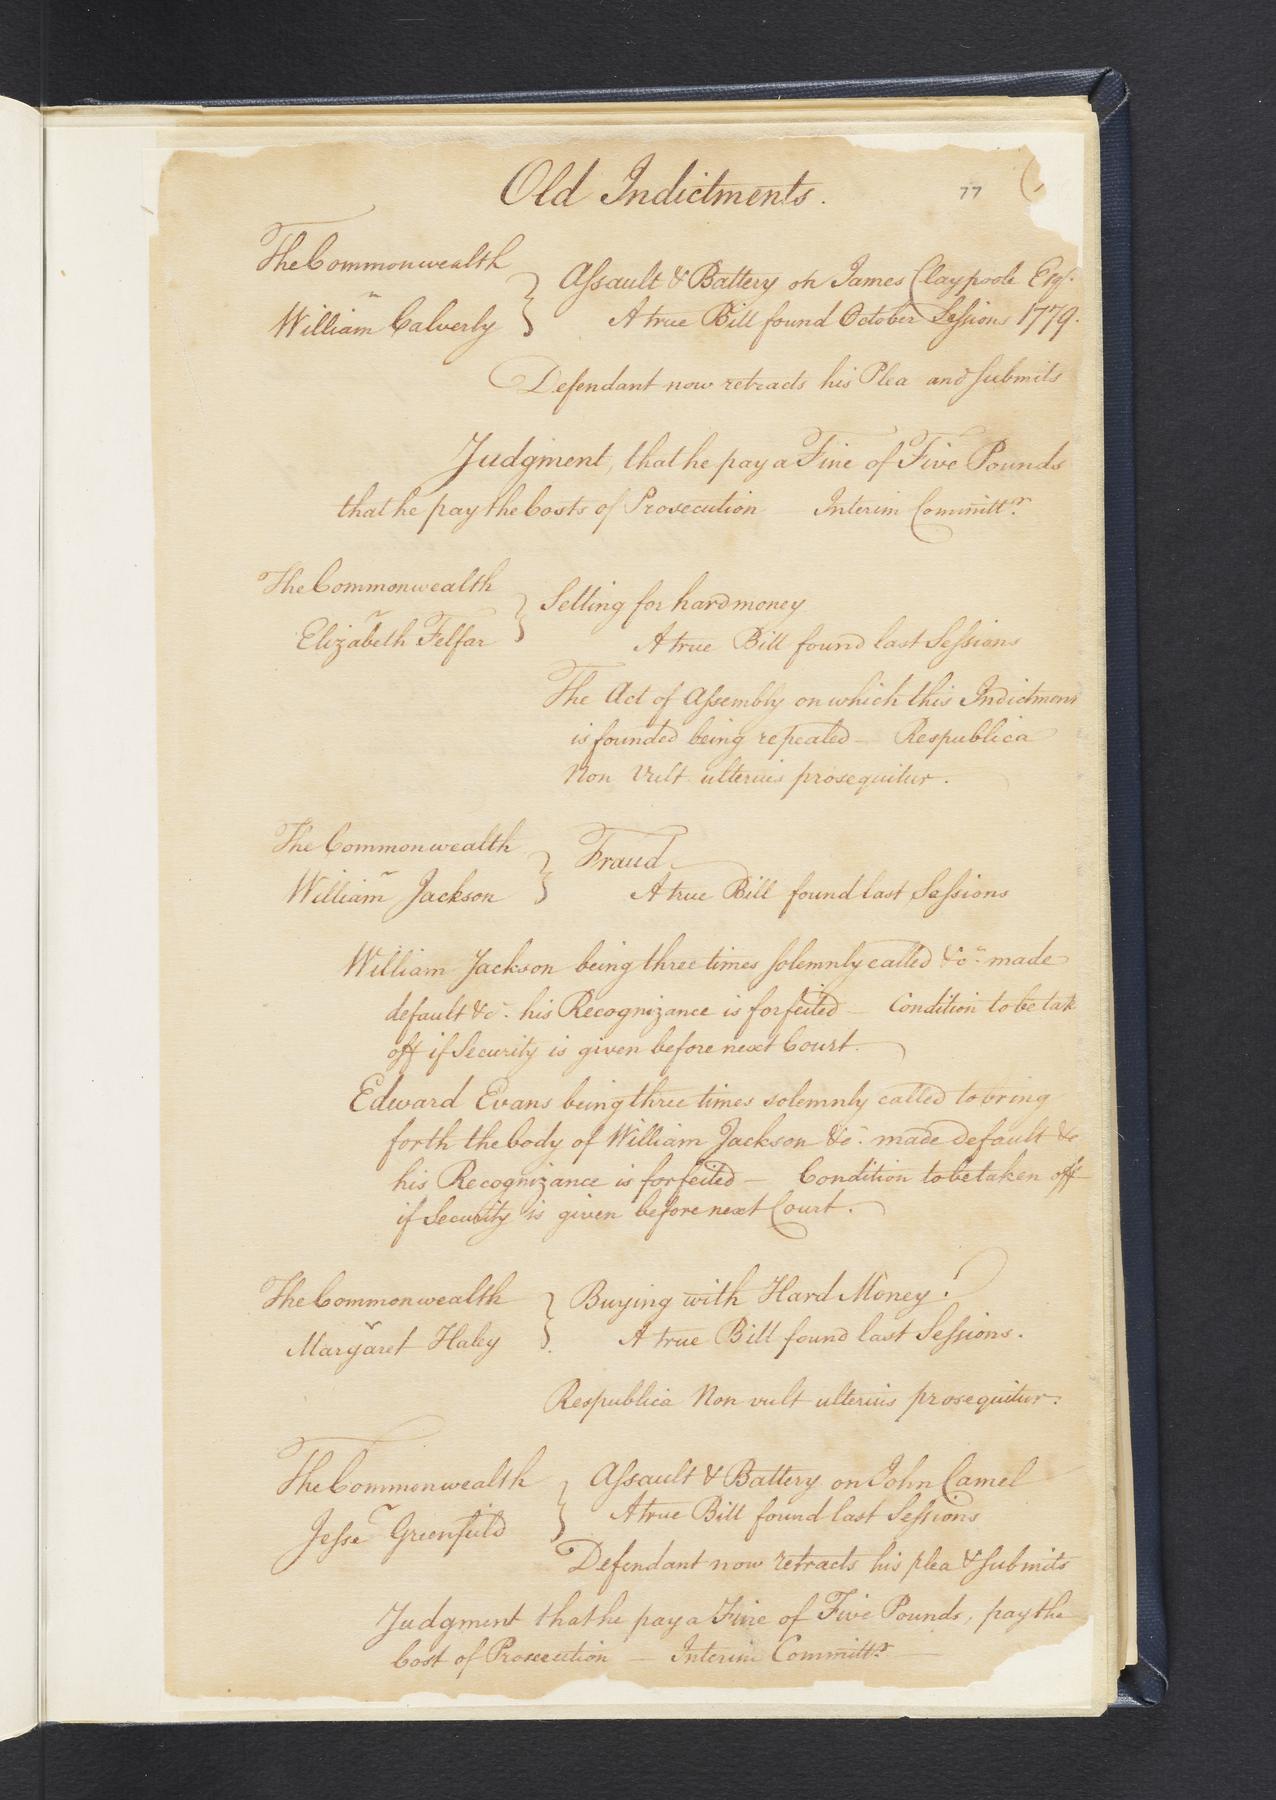 Old Indictments.
77
The Commonwealth
vs
William Calverly
Assault & Battery on James Claypoole Esqr.
A true Bill found October Sessions 1779.
Defendant now retracts his Plea and submits
Judgment, that he pay a Fine of Five Pounds
that he pay the Costs of Prosecution Interim Committr.
The Commonwealth
vs
Elizabeth Felfar
Selling for hard money
A true Bill found last Sessions
The Act of Assembly on which this Indictment
is founded being repealed — Respublica
Non Vult ulterius prosequitur.
The Commonwealth
vs
William Jackson
Fraud
A true Bill found last Sessions
William Jackson being three times solemnly called &ca made
default &c. his Recognizance is forfeited — Condition to be tak
off if Security is given before next Court.
Edward Evans being three times solemnly called to bring
forth the body of William Jackson &c. made default &c
his Recognizance is forfeited — Condition to be taken off
if Security is given before next Court.
The Commonwealth
vs
Margaret Haley
Buying with Hard Money.
A true Bill found last Sessions.
Respublica Non vult ulterius prosequitur.
The Commonwealth
vs
Jesse Greenfield
Assault & Battery on John Camel
A true Bill found last Sessions
Defendant now retracts his plea & submits
Judgment that he pay a Fine of Five Pounds, pay the
Cost of Prosecution — Interim Committr.